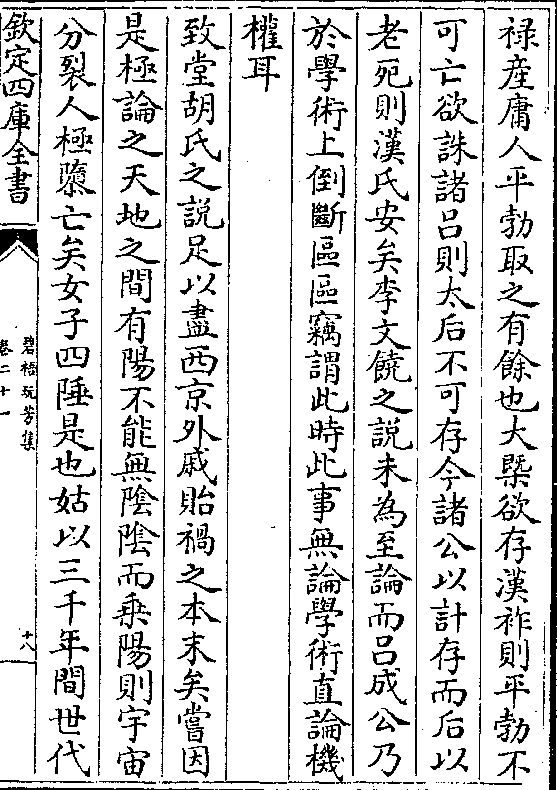 禄産庸人平勃取之有餘也大槩欲存漢祚則平勃不
可亡欲誅諸吕則太后不可存今諸公以計存而后以
老死則漢氏安矣李文饒之説未為至論而吕成公乃
於學術上倒斷區區竊謂此時此事無論學術直論機
權耳
致堂胡氏之説足以盡西京外戚貽禍之本末矣嘗因
是極論之天地之間有陽不能無陰陰而乗陽則宇宙
分裂人極隳亡矣女子四陲是也姑以三千年間世代
欽定四庫全書
碧梧玩芳集
卷二十一
十八